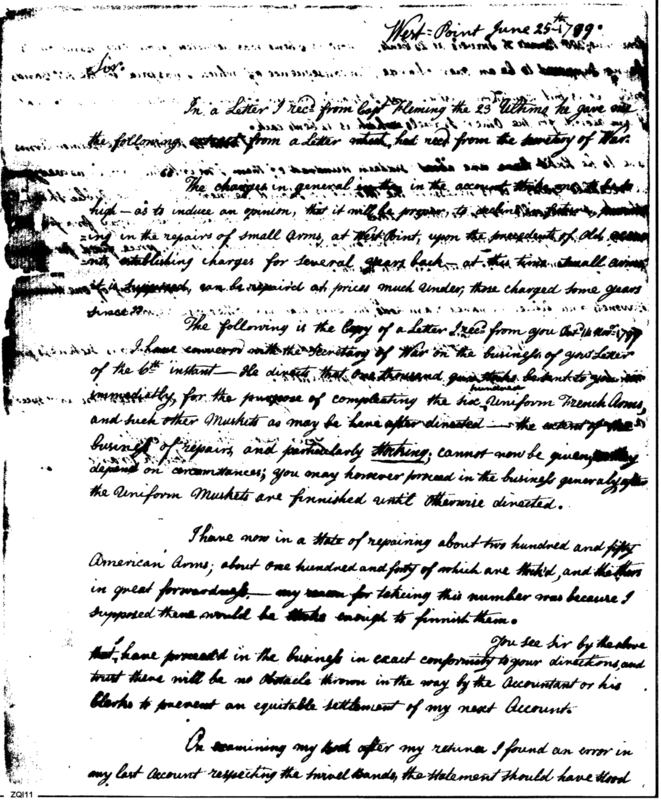 West-Point June 25th 1789.
Sir.
In a Letter I recd from Capt Fleming the 23 Ultimo, he gave me
the following from a Letter had recd from the secretary of War.
The charges in general in the account,
high — as to induce an opinion, that it will be proper to decline in future,
ing in the repairs of small Arms, at West-Point, upon the precedents of old
establishing charges for several years back — at this time small arms
it is supposed, can be repaired at prices much under, those charged some years
since
The following is the Copy of a Letter I recd from you
I have conversed with the Secretary of War on the business of your Letter
of the 6th instant — He directs that one thousand gun stocks be sent to you
immediately, for the purpose of compleating the six hundred Uniform French Arms,
and such other Muskets as may be hereafter directed — the extent of
business of repairs, and particularly Stocking; cannot now be given,
depend on circumstances; you may however proceed in the business generaly after
the Uniform Muskets are finnished until otherwise directed.
I have now in a state of repairing about two hundred and fifty
American Arms; about one hundred and forty of which are stock'd, and the others
in great forwardness, — my reason for takeing this number was because I
supposed there would be stocks enough to finnish them.
You see Sir by the above
that I have proceed'd in the business in exact conformity to your directions, and
trust there will be no obstacle thrown in the way by the Accountant or his
Clerks to prevent an equitable settlement of my next Account.
On examining my book after my return I found an error in
my last Account respecting the Swivel Bands, the statement should have stood
ZQI11